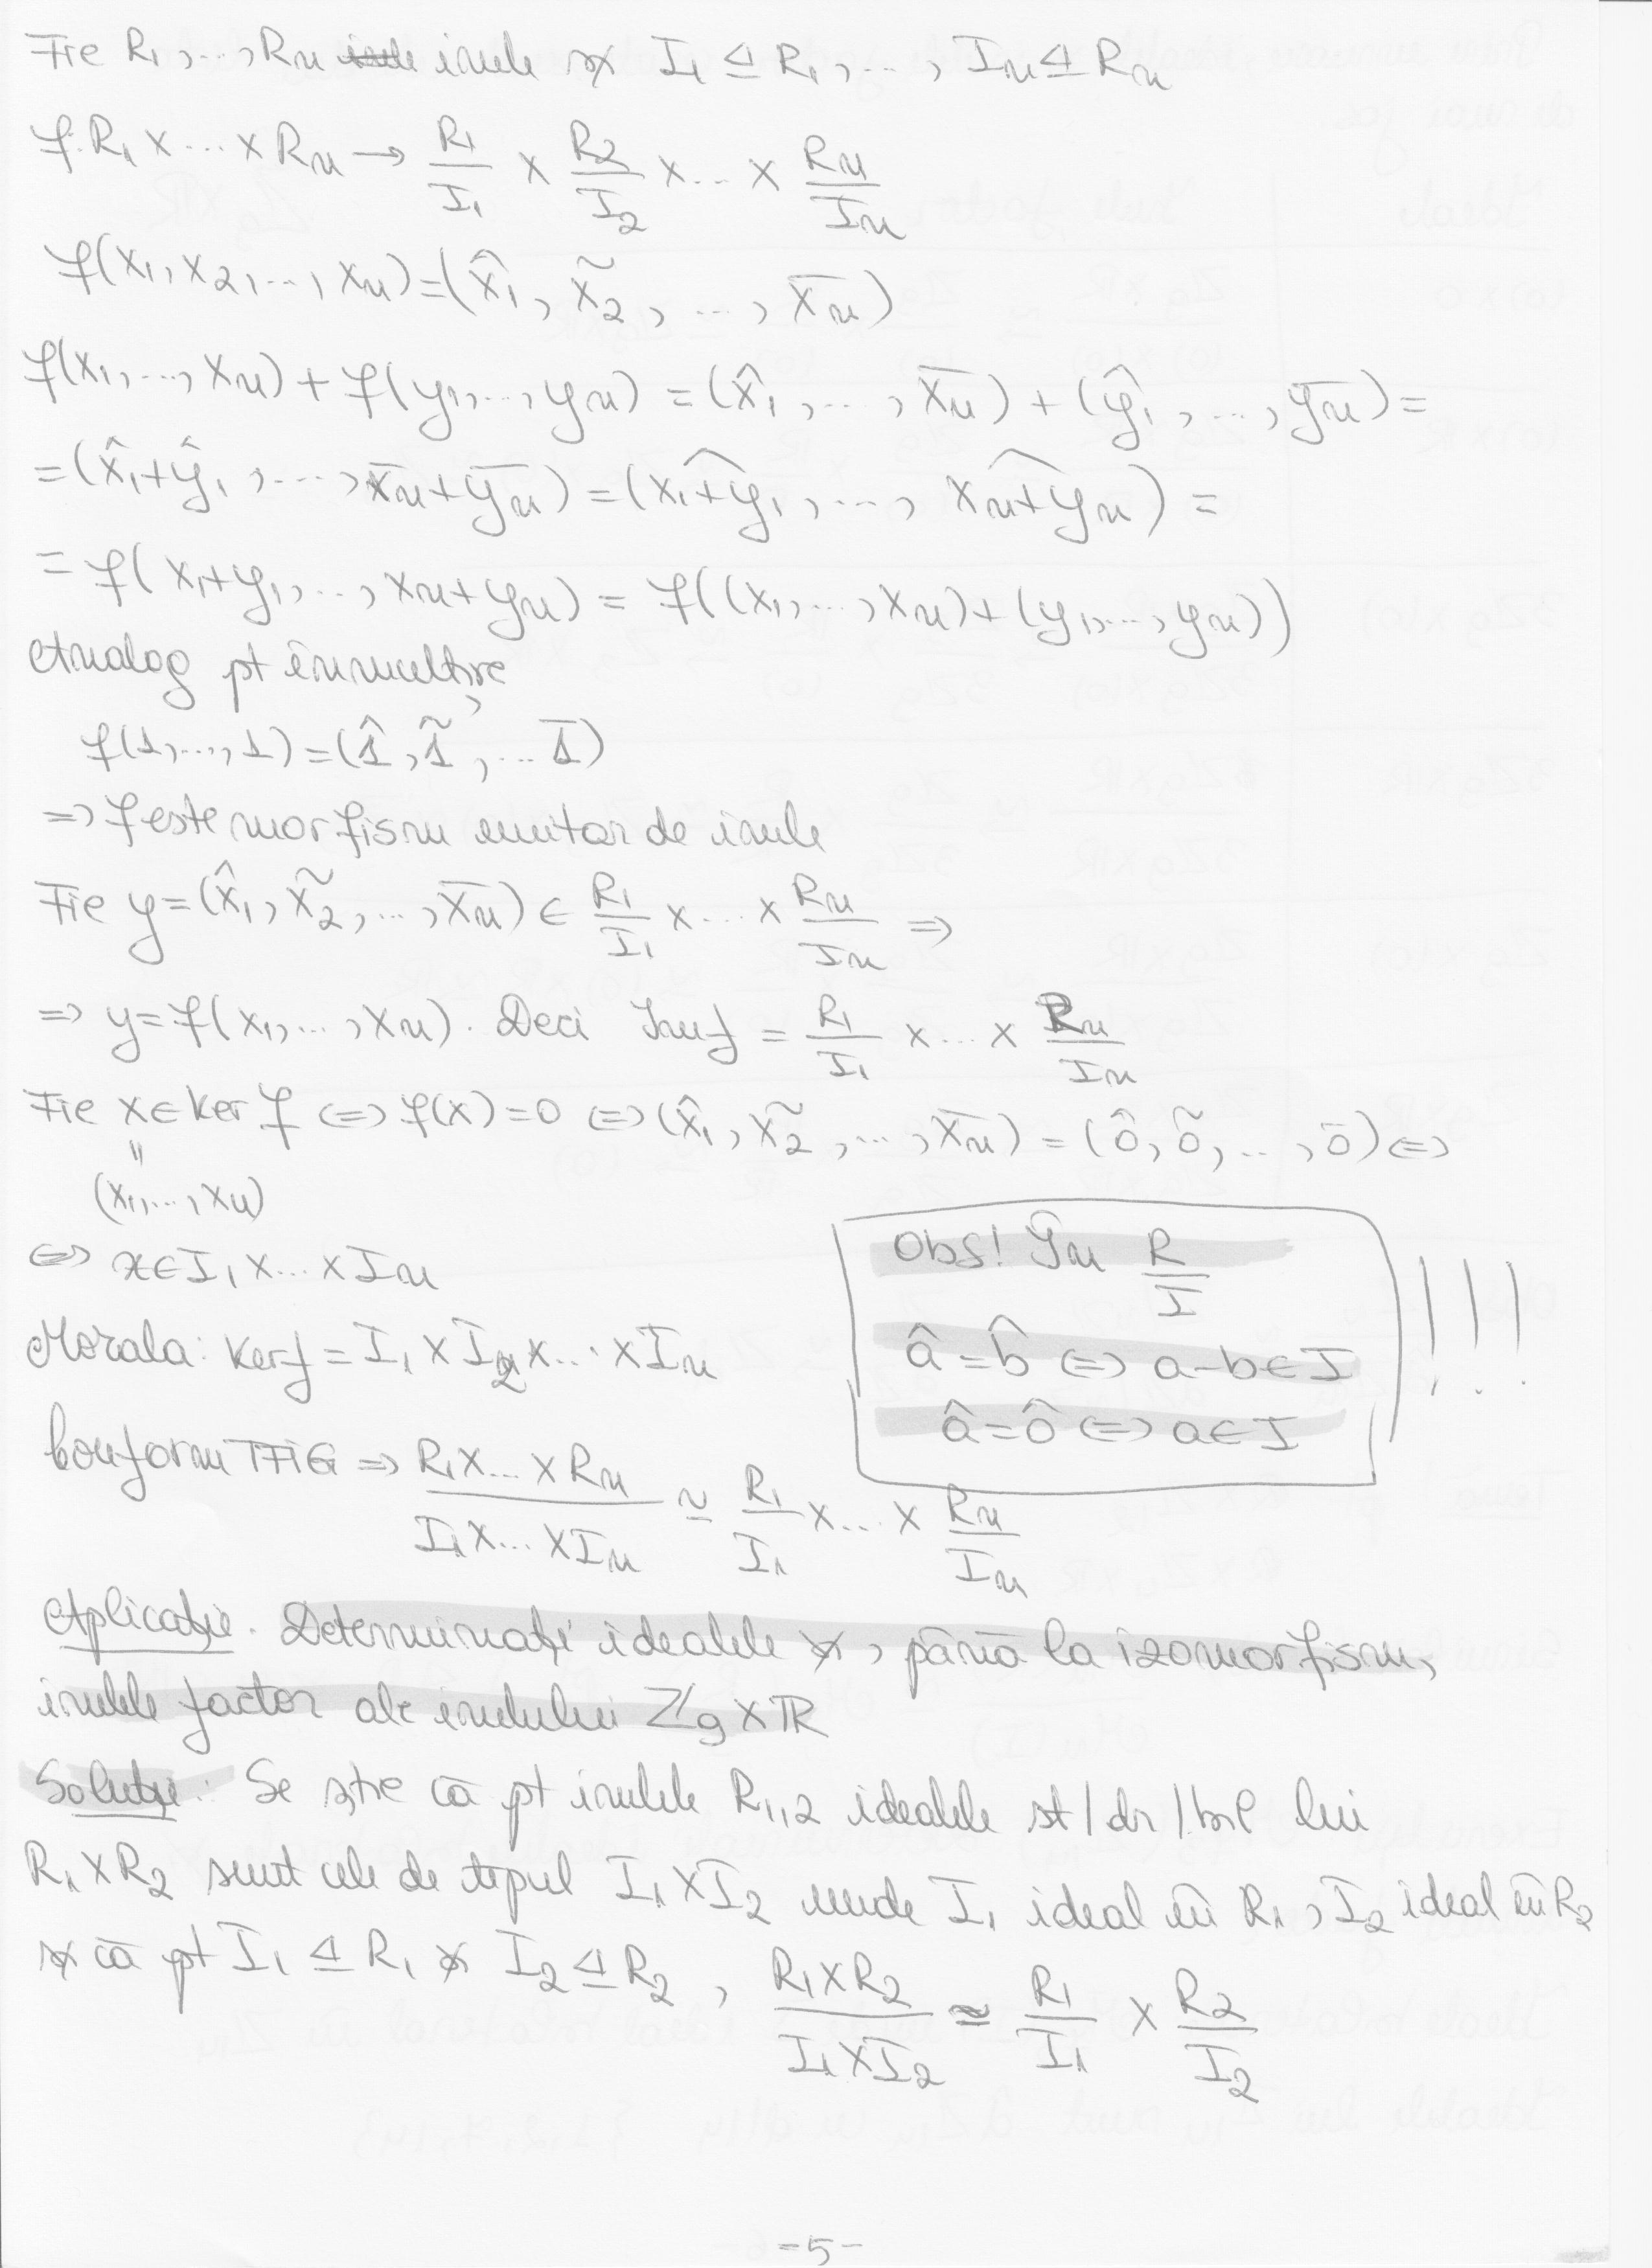 Fie R₁,...,Rₙ inele și I₁ ⊴ R₁,..., Iₙ ⊴ Rₙ
f: R₁ × ... × Rₙ → R₁/I₁ × R₂/I₂ × ... × Rₙ/Iₙ
f(x₁, x₂,..., xₙ) = (x̂₁, x̃₂, ..., x̄ₙ)
f(x₁,..., xₙ) + f(y₁,..., yₙ) = (x̂₁,..., x̄ₙ) + (ŷ₁,..., ȳₙ) =
= (x̂₁+ŷ₁,..., x̄ₙ+ȳₙ) = (\widehat{x₁+y₁},..., \widehat{xₙ+yₙ}) =
= f(x₁+y₁,..., xₙ+yₙ) = f((x₁,..., xₙ)+(y₁,..., yₙ))
Analog pt înmulțire
f(1,...,1) = (1̂, 1̃, ... 1̄)
⇒ f este morfism unitar de inele
Fie y = (x̂₁, x̃₂,..., x̄ₙ) ∈ R₁/I₁ × ... × Rₙ/Iₙ ⇒
⇒ y = f(x₁,..., xₙ). Deci Im f = R₁/I₁ × ... × Rₙ/Iₙ
Fie x ∈ Ker f ⇔ f(x) = 0 ⇔ (x̂₁, x̃₂,..., x̄ₙ) = (0̂, 0̃,..., 0̄) ⇔
=
(x₁,..., xₙ)
⇔ x ∈ I₁ × ... × Iₙ
Morala: Ker f = I₁ × I₂ × ... × Iₙ
Obs! În R/I
â = b̂ ⇔ a-b ∈ I
â = 0̂ ⇔ a ∈ I
!!!
Conform TFIG ⇒ R₁×...×Rₙ / I₁×...×Iₙ ≃ R₁/I₁ × ... × Rₙ/Iₙ
Aplicație. Determinați idealele și, până la izomorfism,
inelele factor ale inelului ℤ₉ × ℝ
Soluție: Se știe că pt inelele R₁,₂ idealele st/dr/bil lui
R₁×R₂ sunt cele de tipul I₁×I₂ unde I₁ ideal în R₁, I₂ ideal în R₂
și că pt I₁ ⊴ R₁ și I₂ ⊴ R₂, R₁×R₂ / I₁×I₂ ≃ R₁/I₁ × R₂/I₂
-5-